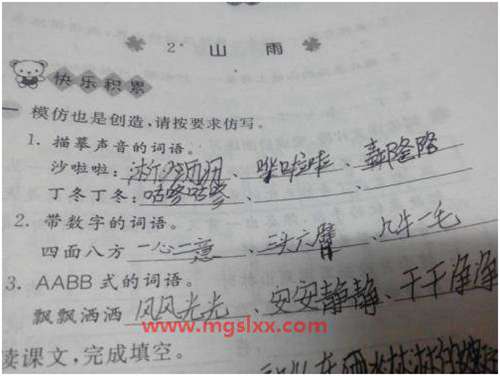 2* 山 雨
快乐积累
一 模仿也是创造,请按要求仿写。
1. 描摹声音的词语。
沙啦啦: 、哗啦啦、轰隆隆
丁冬丁冬:咕咚咕咚、 、
2. 带数字的词语。
四面八方 一心二意、三头六臂、九牛一毛
3. AABB 式的词语。
飘飘洒洒 风风光光、安安静静、干干净净
www.mgslxx.com
读课文,完成填空。